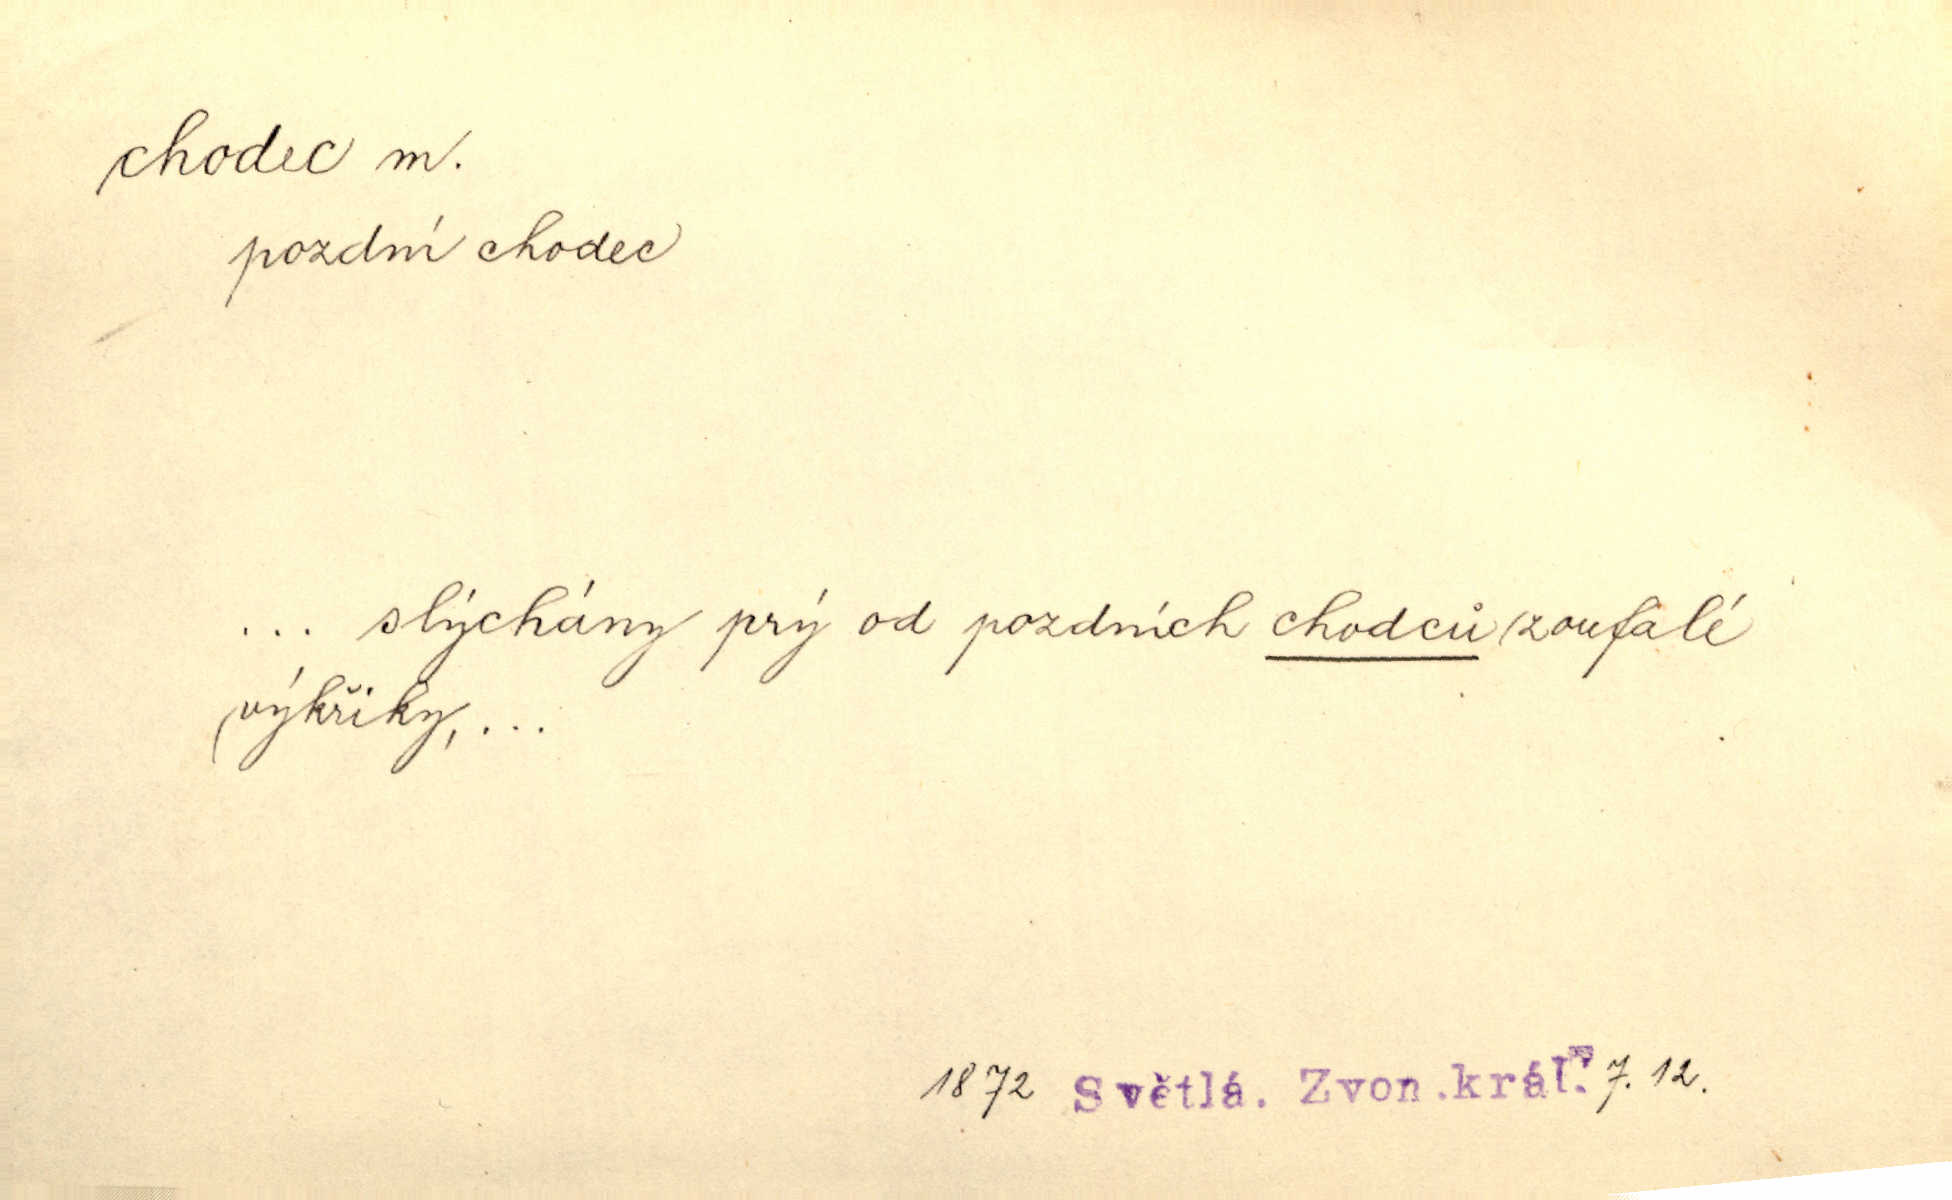 chodec m.
pozdní chodec
... slýchány prý od pozdních chodců zoufalé
výkřiky, ...
1872 Světlá. Zvon.král. 7. 12.